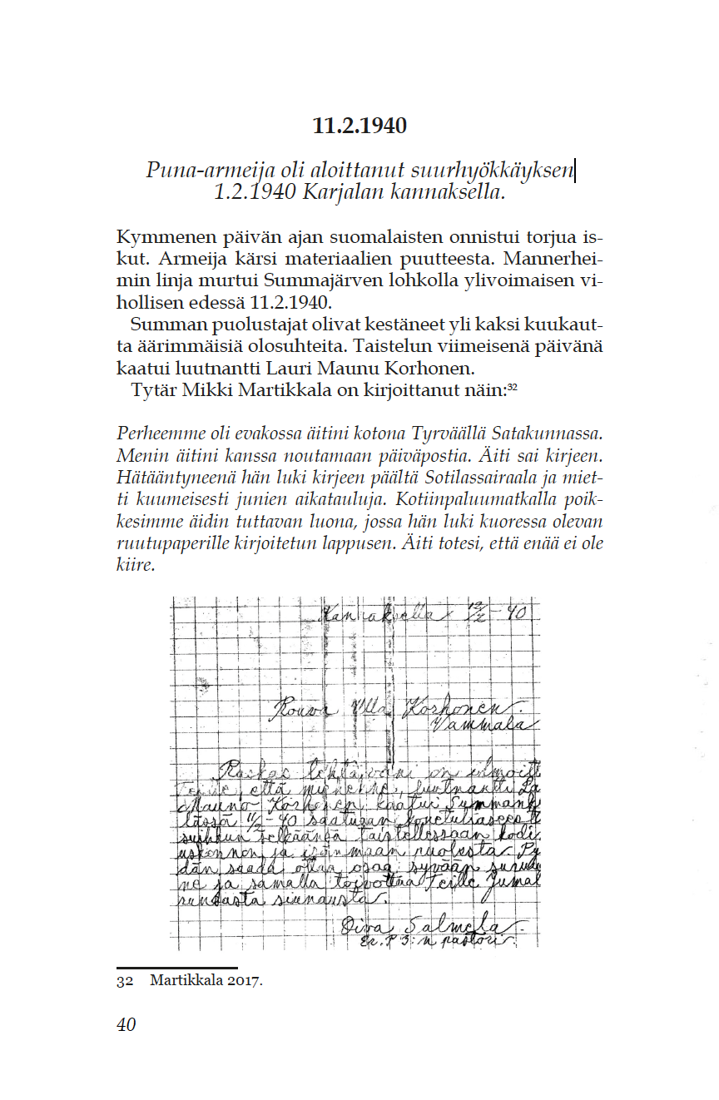 11.2.1940
Puna-armeija oli aloittanut suurhyökkäyksen
1.2.1940 Karjalan kannaksella.
Kymmenen päivän ajan suomalaisten onnistui torjua is-
kut. Armeija kärsi materiaalien puutteesta. Mannerhei-
min linja murtui Summajärven lohkolla ylivoimaisen vi-
hollisen edessä 11.2.1940.
Summan puolustajat olivat kestäneet yli kaksi kuukaut-
ta äärimmäisiä olosuhteita. Taistelun viimeisenä päivänä
kaatui luutnantti Lauri Maunu Korhonen.
Tytär Mikki Martikkala on kirjoittanut näin:32
Perheemme oli evakossa äitini kotona Tyrväällä Satakunnassa.
Menin äitini kanssa noutamaan päiväpostia. Äiti sai kirjeen.
Hätääntyneenä hän luki kirjeen päältä Sotilassairaala ja miet-
ti kuumeisesti junien aikatauluja. Kotiinpaluumatkalla poik-
kesimme äidin tuttavan luona, jossa hän luki kuoressa olevan
ruutupaperille kirjoitetun lappusen. Äiti totesi, että enää ei ole
kiire.
Kannaksella 12/2 - 40
Rouva Ulla Korhonen.
Vammala
Raskas tehtäväni on ilmoitt
Teille, että miehenne, luutnantti La
Mauno Korhonen kaatui Summank
lässä 11/2 - 40 saatuaan konetuliaseen
suihkun selkäänsä taistellessaan kodi
uskonnon ja isänmaan puolesta. Py
dän saada ottaa osaa syvään suruun
ne ja samalla toivottaa Teille Jumal
runsasta siunausta.
Oiva Salmela.
Er. P 3:n pastori.
32 Martikkala 2017.
40